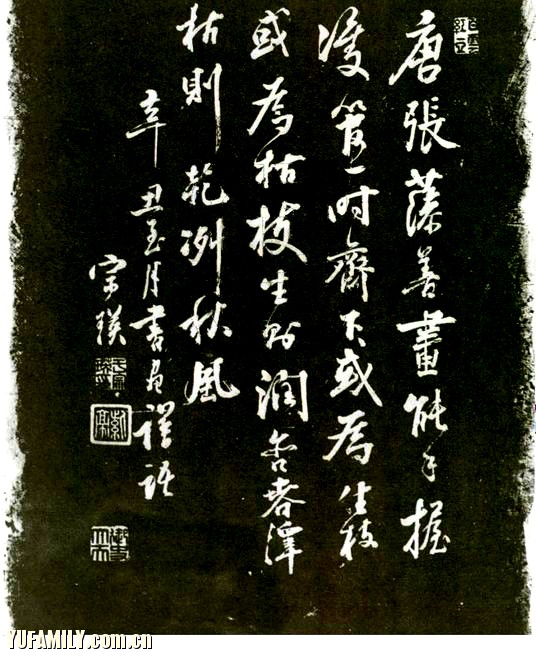 唐張藻善畫能手握
雙管一時齊下或為生枝
或為枯枝生則潤含春澤
枯則乾冽秋風
辛丑五月書
YUFAMILY.com.cn